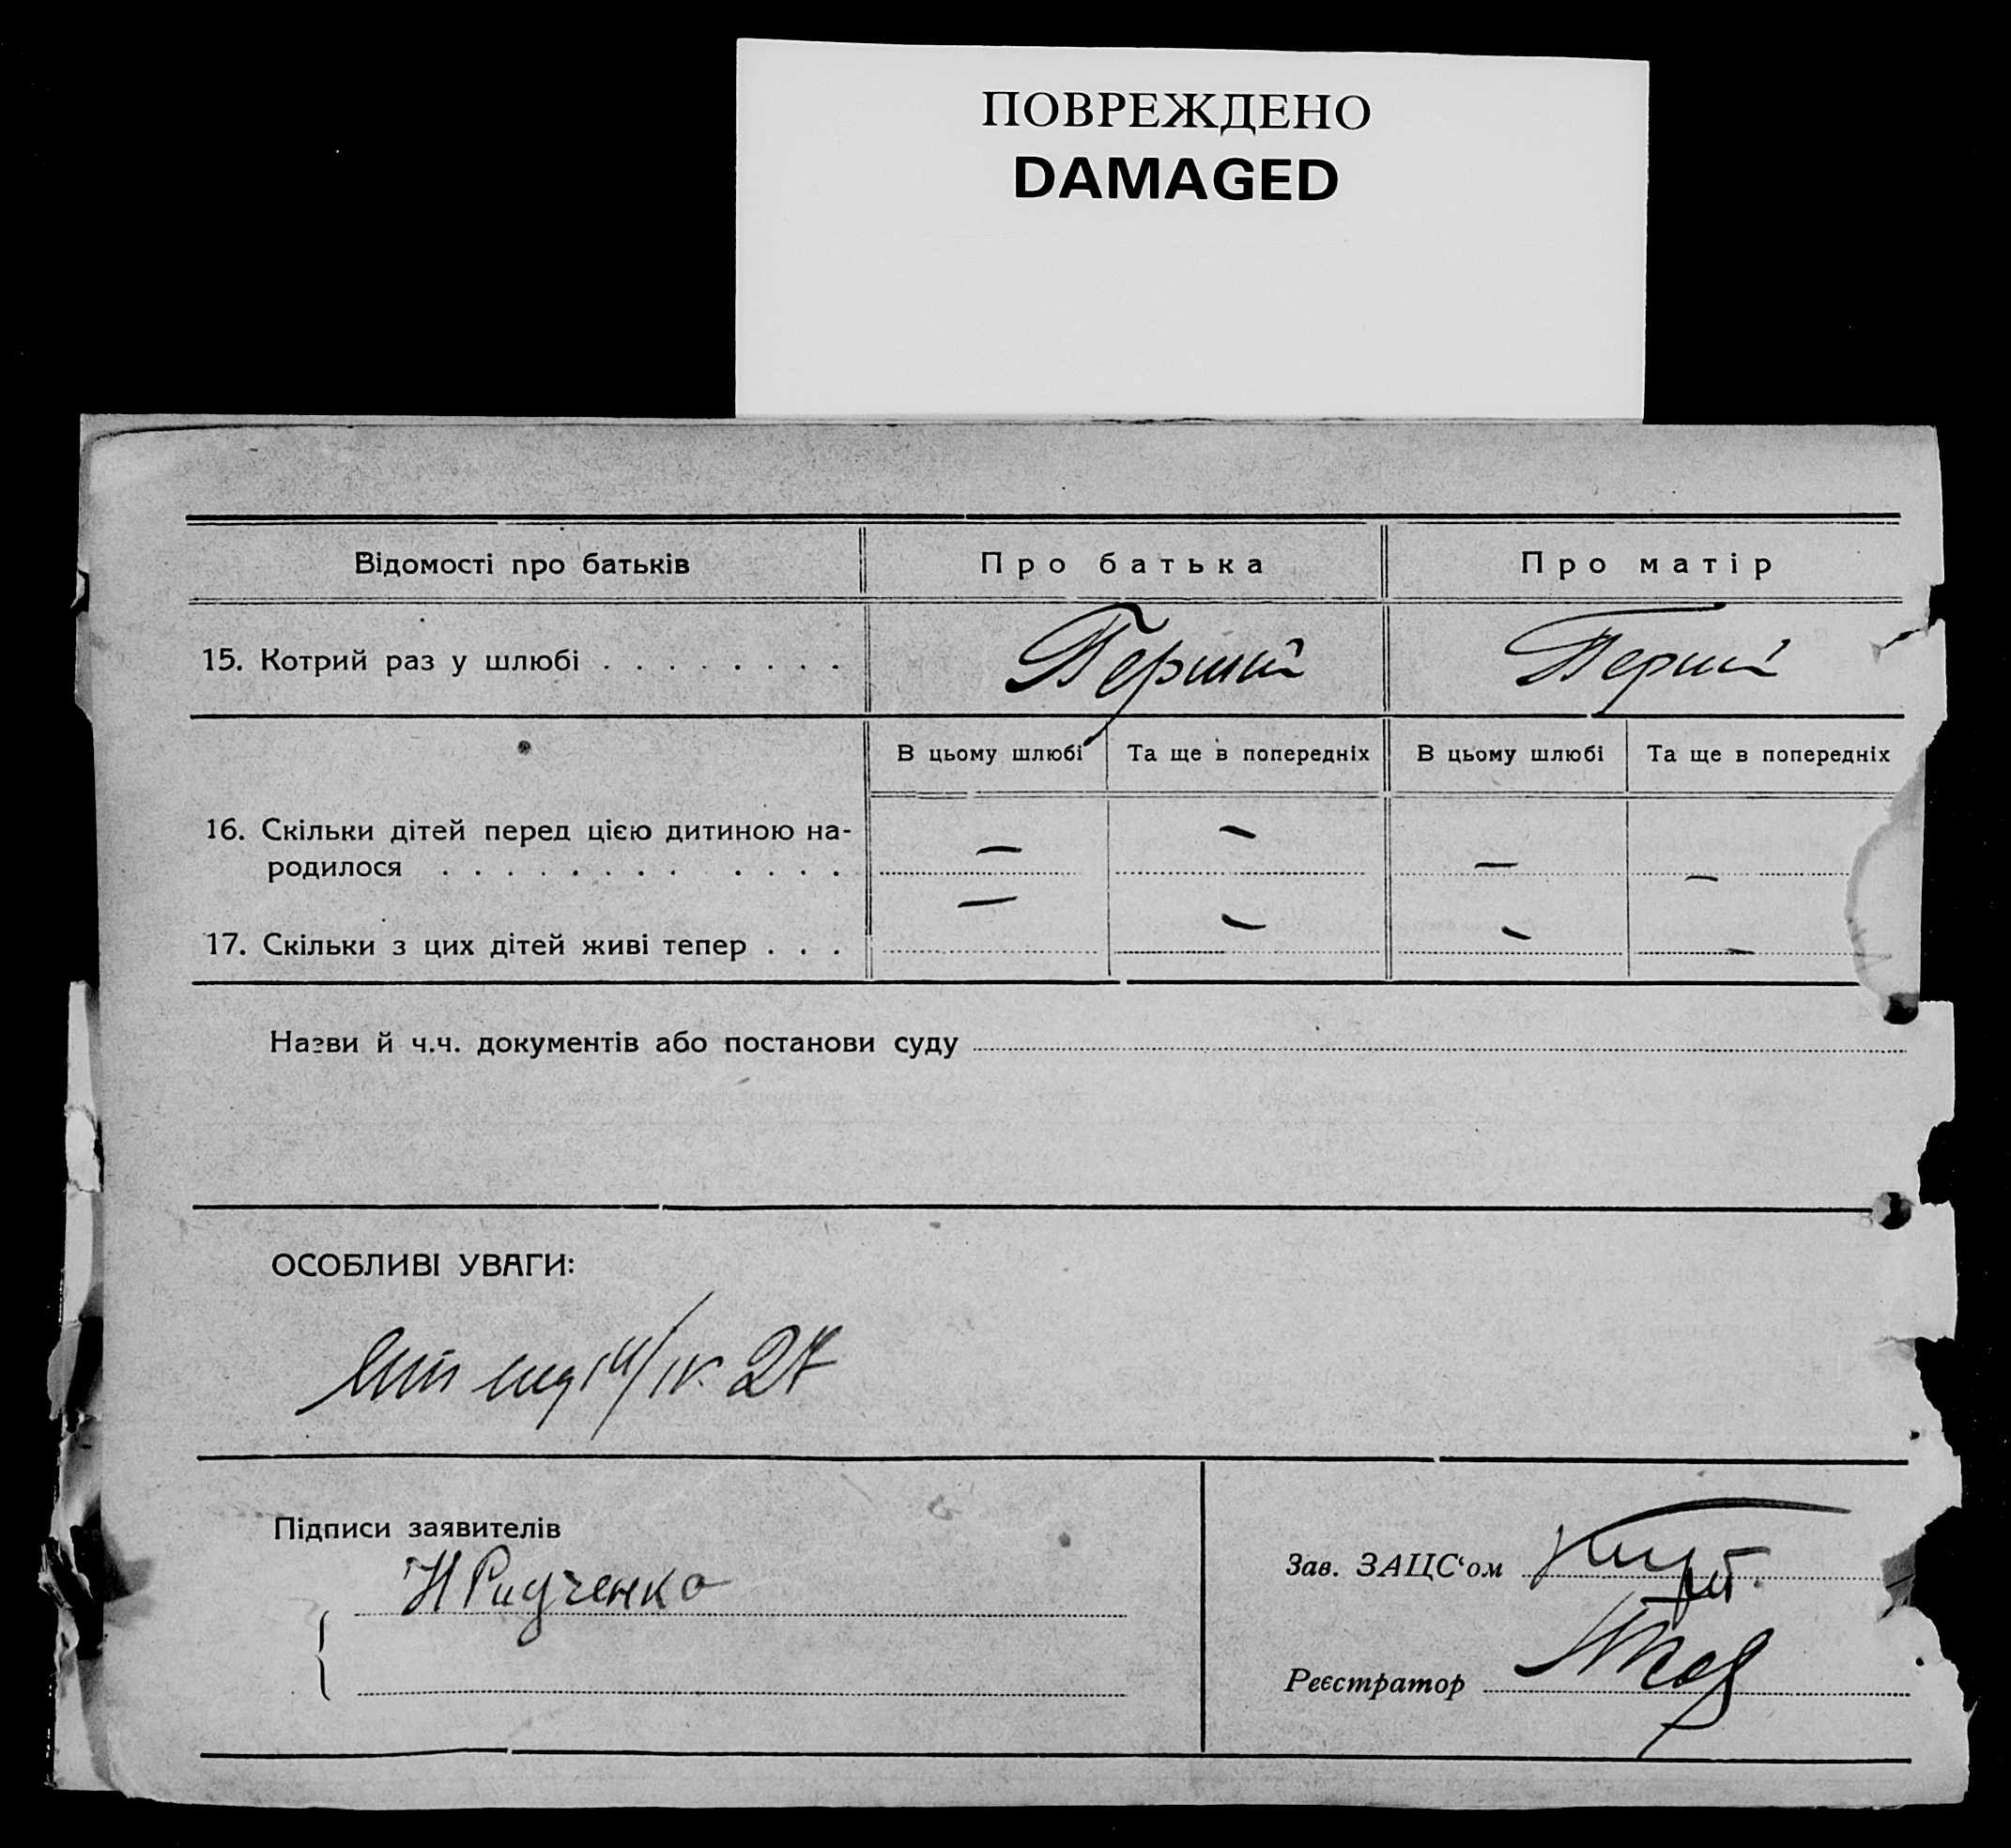 ПОВРЕЖДЕНО
DAMAGED
Відомості про батьків Про батька Про матір
15. Котрий раз у шлюбі . . . . . . . . Перший Перши
В цьому шлюбі Та ще в попередніх В цьому шлюбі Та ще в попередніх
16. Скільки дітей перед цією дитиною на-
родилося . . . . . . . . . . . . — — — —
17. Скільки з цих дітей живі тепер . . . — — — —
Назви й ч.ч. документів або постанови суду
ОСОБЛИВІ УВАГИ:
14/IV. 27
Підписи заявителів
Зав. ЗАЦС‘ом
Н Радченко
Реєстратор